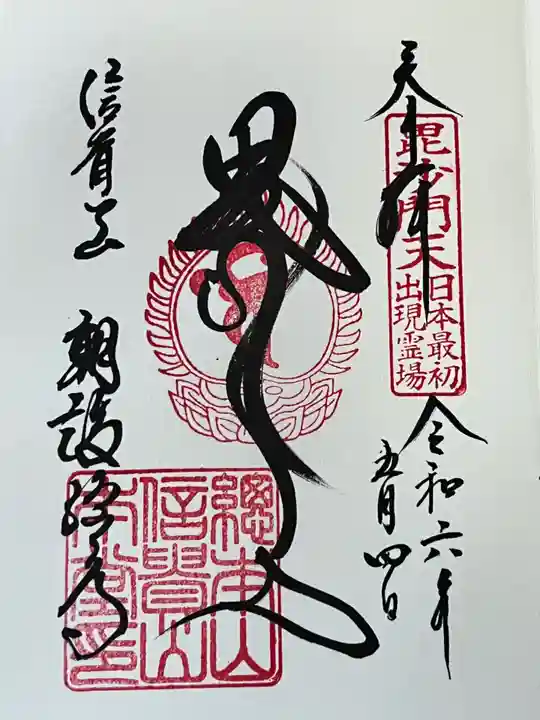 奉拝
毘沙門天
日本最初
出現霊場
令和六年
五月四日
信貴山
朝護孫子
總本山
信貴山
本堂印